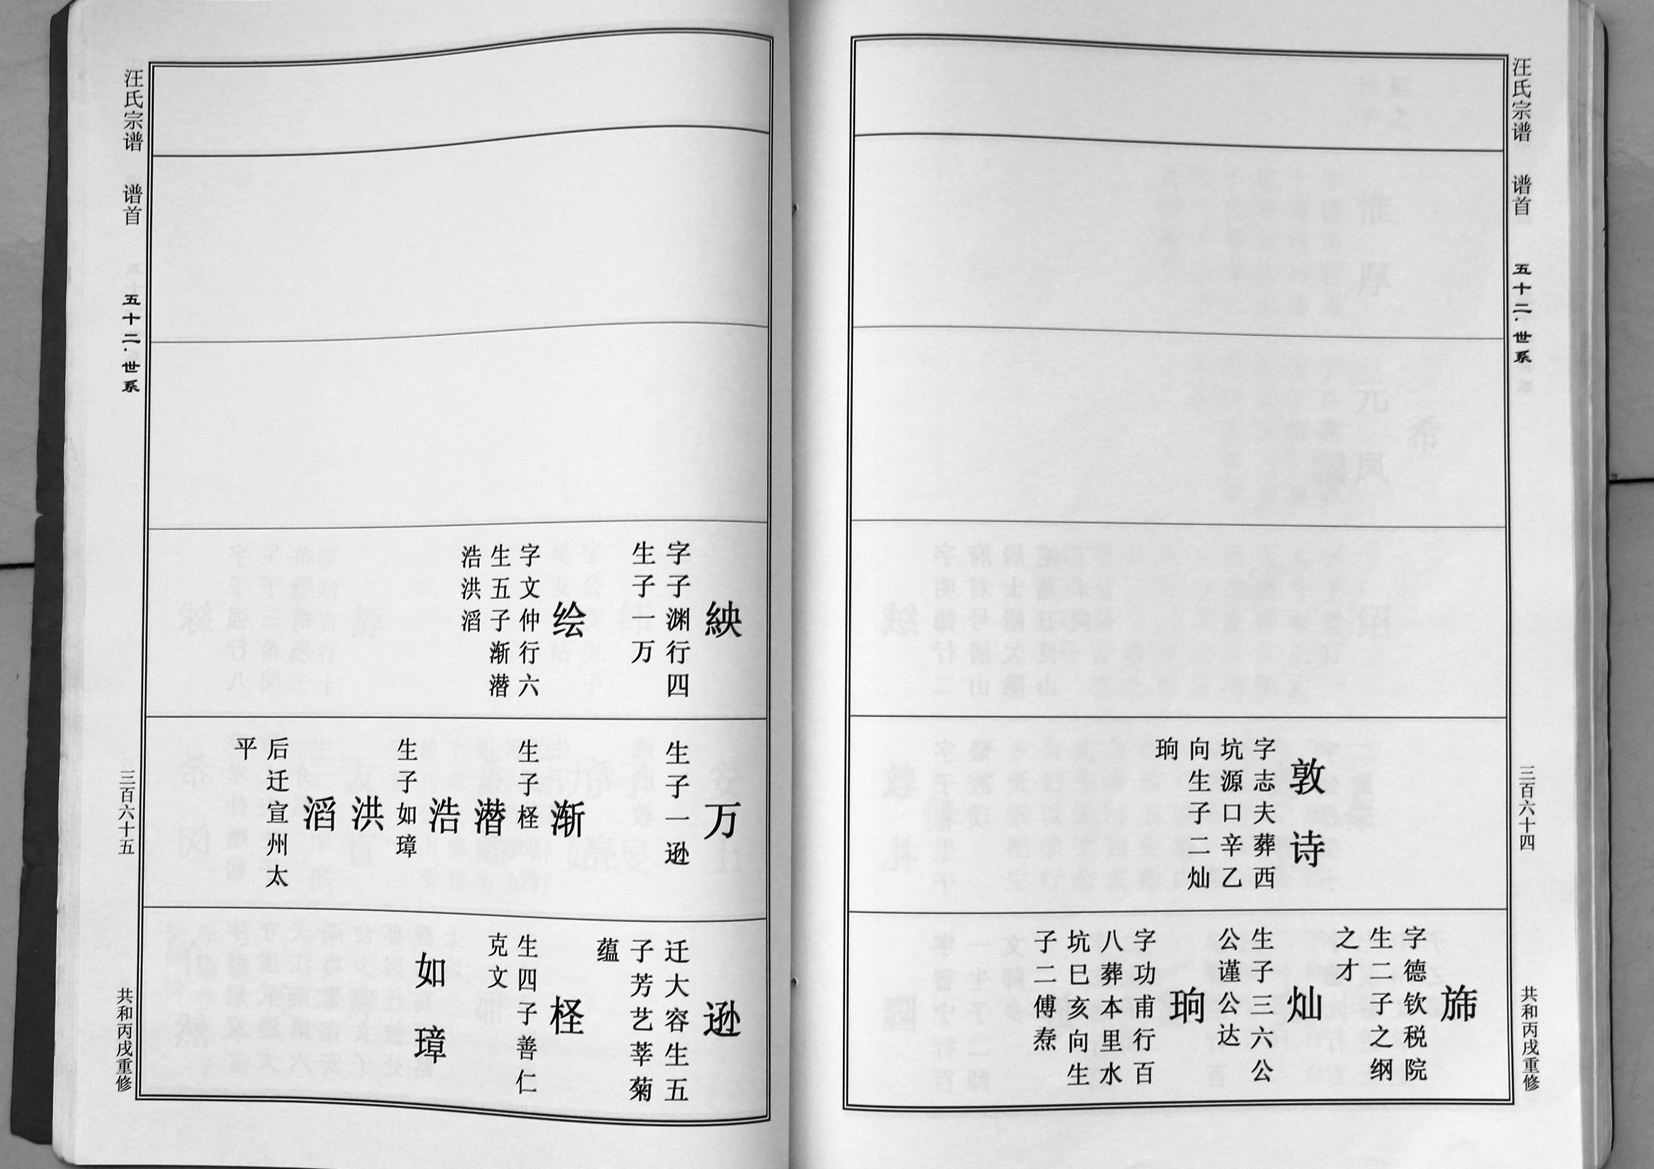 汪氏宗谱
谱首
五十二·世系
三百六十四
共和丙戌重修
敦诗
字志夫葬西
坑源口辛乙
向生子二灿
珦
旆
字德钦税院
生二子之纲
之才
灿
生子三六公
公谨公达
珦
字功甫行百
八葬本里水
坑巳亥向生
子二傅焘
汪氏宗谱
谱首
五十二·世系
三百六十五
共和丙戌重修
紻
字子渊行四
生子万
绘
字文仲行六
生五子渐潜
浩洪滔
万
生子一逊
渐
生子柽
潜
浩
生子如璋
洪
滔
后迁宣州太
平
逊
迁大容生五
子芳艺莘菊
蕴
柽
生四子善仁
克文
如璋